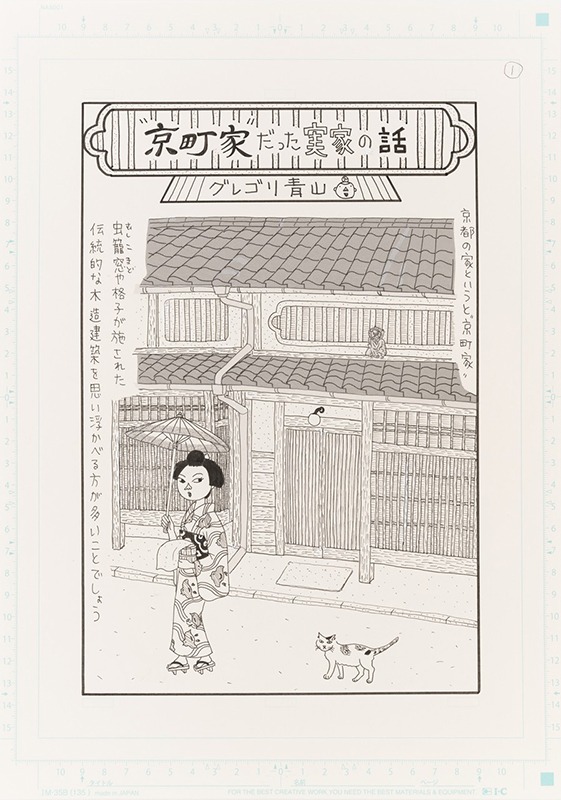 ①
"京町家"だった実家の話
グレゴリ青山
京都の家というと"京町家"
虫籠窓や格子が施された
むしこまど
伝統的な木造建築を思い浮かべる方が多いことでしょう
FOR THE BEST CREATIVE WORK, YOU NEED THE BEST MATERIALS & EQUIPMENT